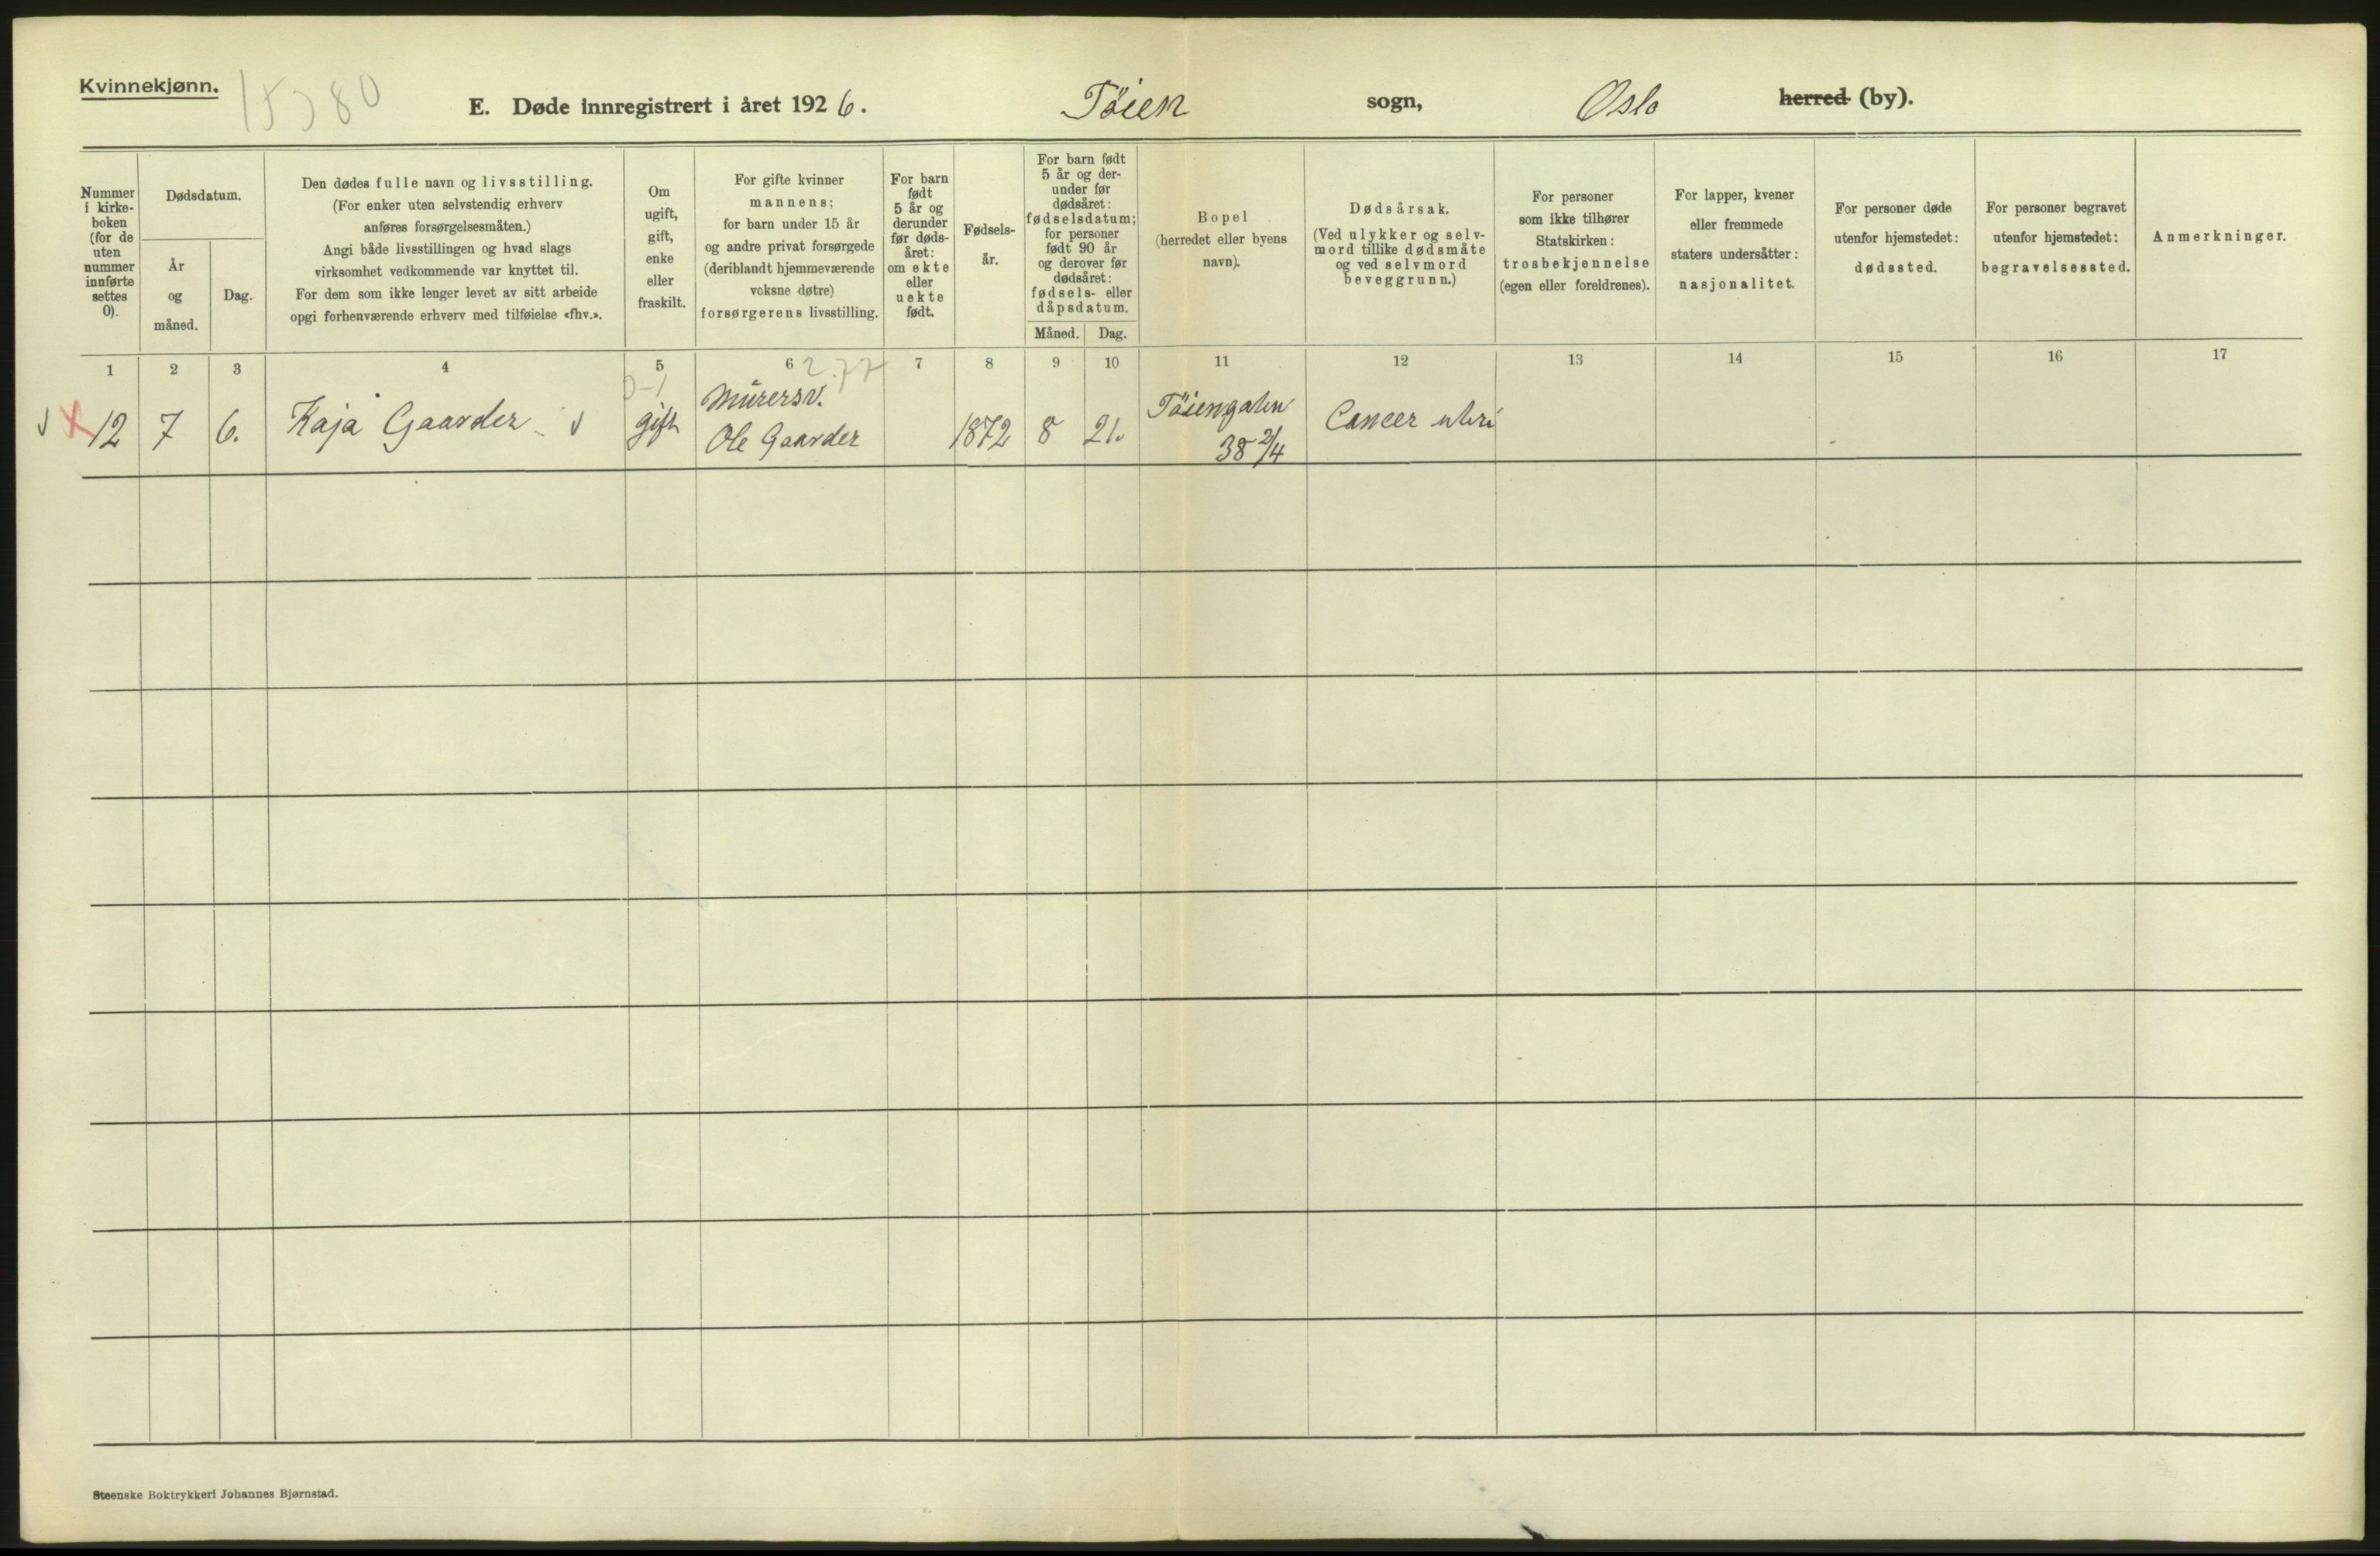 Kvinnekjønn.
15380
E. Døde innregistrert i året 1926. Tøien sogn, Oslo herred (by).
Nummer
i kirke-
boken
(for de
uten
nummer
innførte
settes
0).
Dødsdatum.
År
og
måned.
Dag.
Den dødes fulle navn og livsstilling.
(For enker uten selvstendig erhverv
anføres forsørgelsesmåten.)
Angi både livsstillingen og hvad slags
virksomhet vedkommende var knyttet til.
For dem som ikke lenger levet av sitt arbeide
opgi forhenværende erhverv med tilføielse «fhv.».
Om
ugift,
gift,
enke
eller
fraskilt.
For gifte kvinner
mannens;
for barn under 15 år
og andre privat forsørgede
(deriblandt hjemmeværende
voksne døtre)
forsørgerens livsstilling.
For barn
født
5 år og
derunder
før døds-
året:
om ekte
eller
uekte
født.
Fødsels-
år.
For barn født
5 år og der-
under før
dødsåret:
fødselsdatum;
for personer
født 90 år
og derover før
dødsåret:
fødsels- eller
dåpsdatum.
Måned. Dag.
Bopel
(herredet eller byens
navn).
Dødsårsak.
(Ved ulykker og selv-
mord tillike dødsmåte
og ved selvmord
beveggrunn.)
For personer
som ikke tilhører
Statskirken:
trosbekjennelse
(egen eller foreldrenes).
For lapper, kvener
eller fremmede
staters undersåtter:
nasjonalitet.
For personer døde
utenfor hjemstedet:
dødssted.
For personer begravet
utenfor hjemstedet:
begravelsessted.
Anmerkninger.
1 2 3 4 5 6 7 8 9 10 11 12 13 14 15 16 17
0-1 2.77
12 7 6. Kaja Gaarder gift Mürersv. 1872 8 21. Tøiengaten Cancer uteri
Ole Gaarder 38 2/4
Steenske Boktrykkeri Johannes Bjørnstad.